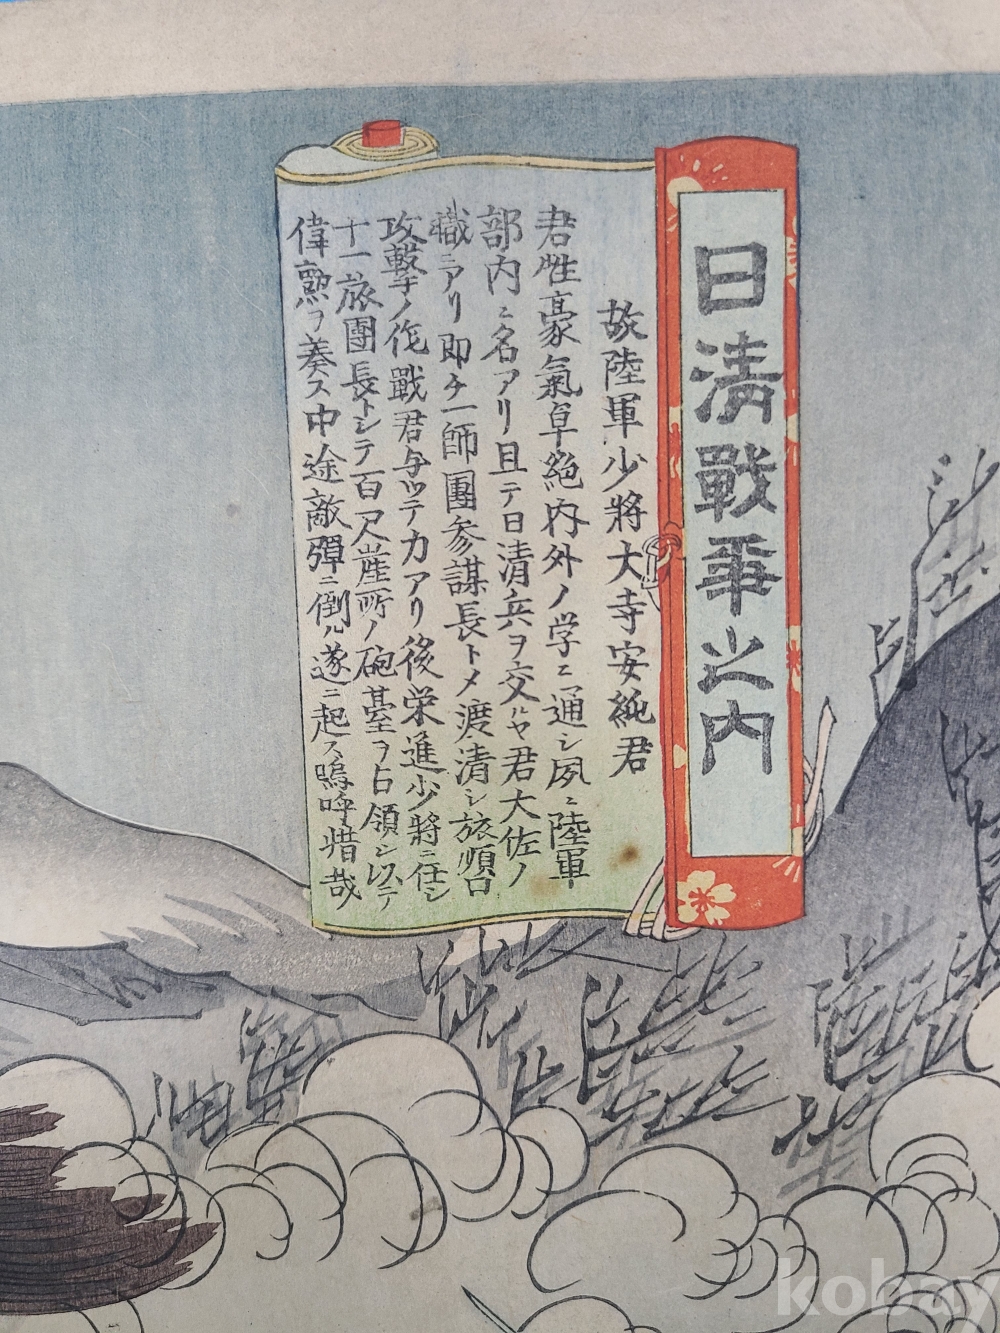 日清戰爭之内
故陸軍少將大寺安純君
君性豪氣卓絶内外ノ学ニ通シ夙ニ陸軍
部内ニ名アリ且テ日清兵ヲ交ルヤ君大佐ノ
職ニアリ即チ一師團参謀長トメ渡清シ旅順口
攻撃ノ作戰君与ツテ力アリ後栄進少將ニ任シ
十一旅團長トシテ百尺崖所ノ砲臺ヲ占領シ以テ
偉勲ヲ奏ス中途敵彈ニ倒ル遂ニ起ス嗚呼惜哉
kobay